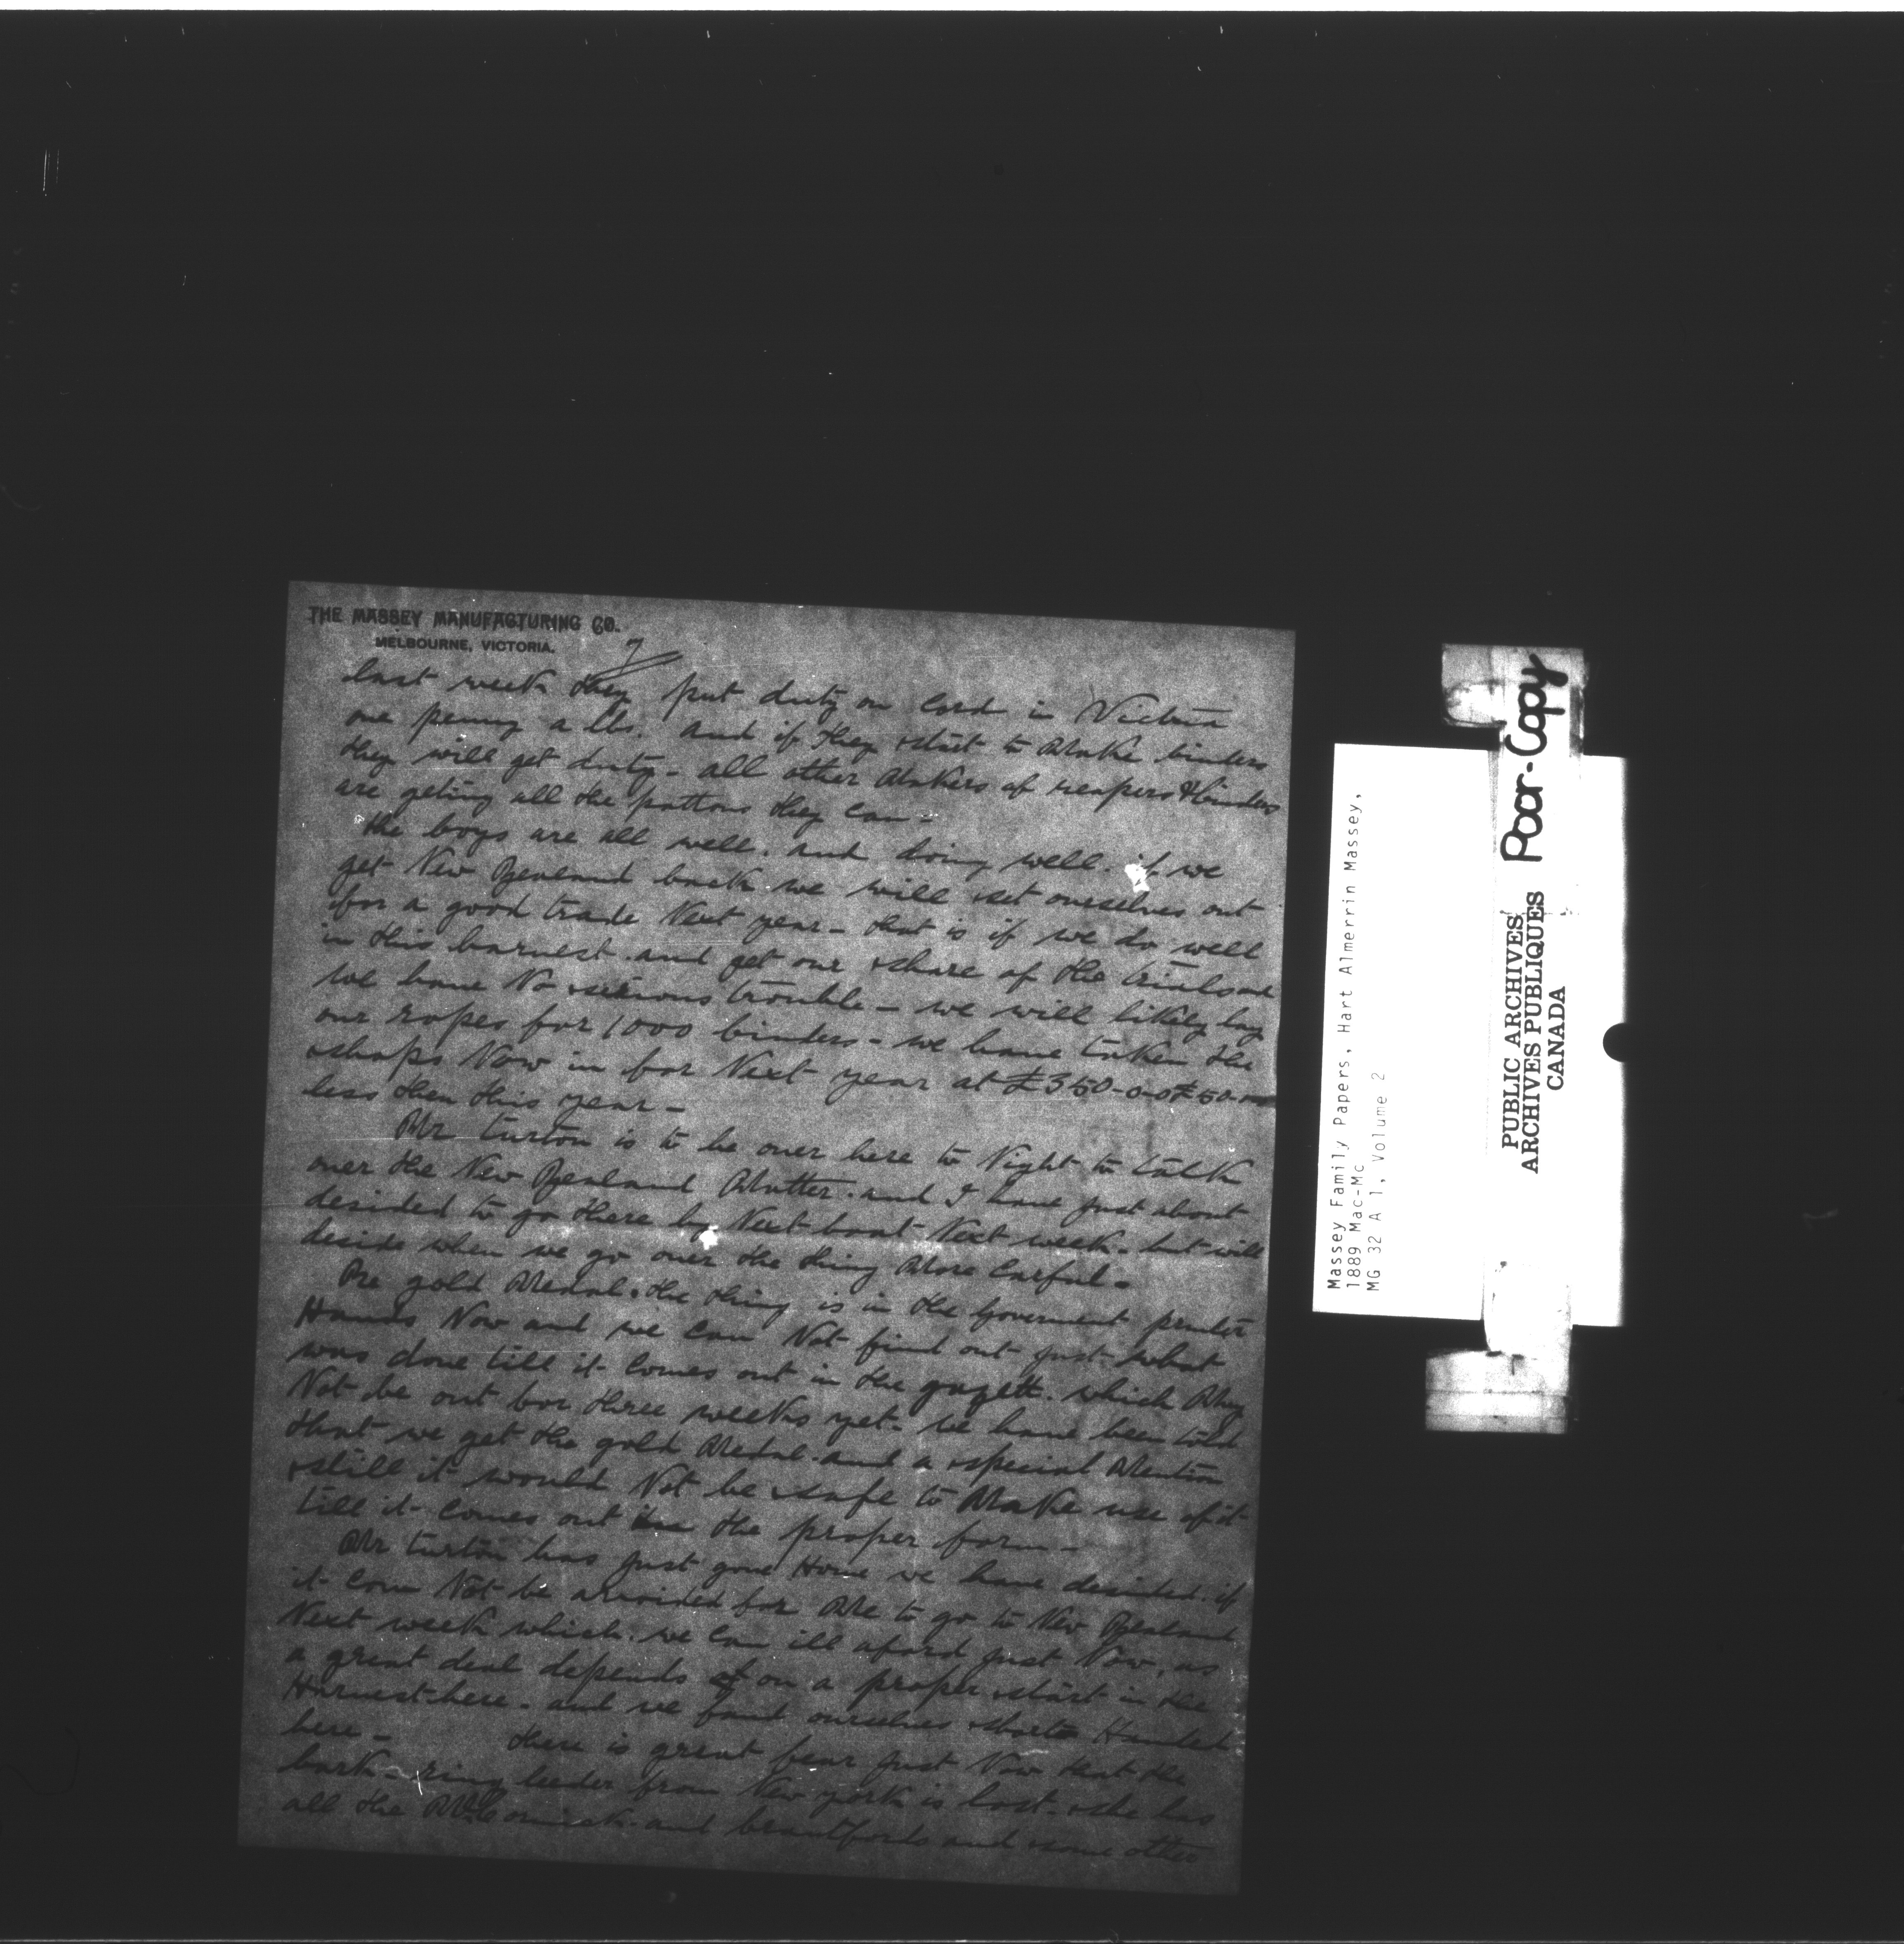 THE MASSEY MANUFACTURING CO.
MELBOURNE, VICTORIA.
7
last week they put duty on cord in Victoria
one penny a lbs. and if they start to Make binders
they will get duty - all other Makers of reapers & binders
are geting all the pattons they can -
the boys are all well. and doing well. if we
get New Zealand back we will set ourselves out
for a good trade Next year - that is if we do well
in this harvest. and get our share of the trials and
we have No serious trouble - we will likely lay
our ropes for 1000 binders - we have taken the
shops Now in for Next year at £350-0-0 £50-
less then this year -
Mr Turton is to be over here to Night to talk
over the New Zealand Matter. and I have just about
desided to go there by Next boat Next week. but will
deside when we go over the thing More carful -
Re gold Medal. the thing is in the Goverment printer
Hands Now and we can Not find out just what
was done till it comes out in the gazett. which May
Not be out for three weeks yet - we have been told
that we get the gold Medal. and a special Mention
still it would Not be safe to Make use of it
till it comes out in the proper form -
Mr Turton has just gone Home we have desided. if
it can Not be avoided for Me to go to New Zealand
Next week which. we can ill aford just Now, as
a great deal depends on a proper start in the
Harvest here - and we find ourselves short Handed
here - there is great fear just Now that the
bark - ring leeder from New york is lost. she has
all the McComick. and brantfords and some other
Massey Family Papers, Hart Almerrin Massey,
1889 Mac-Mc
MG 32 A 1, Volume 2
PUBLIC ARCHIVES
ARCHIVES PUBLIQUES
CANADA
Poor-Copy